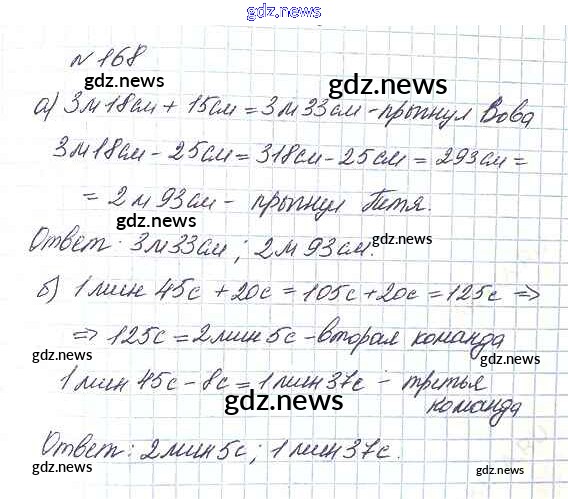 gdz.news
№168
gdz.news
gdz.news
а) 3м 18см + 15см = 3м 33см - прыгнул Вова
3м 18см - 25см = 318см - 25см = 293см =
gdz.news
= 2м 93см - прыгнул Петя.
gdz.news
gdz.news
Ответ: 3м 33см; 2м 93см.
gdz.news
б) 1мин 45с + 20с = 105с + 20с = 125с ⇒
gdz.news
⇒ 125с = 2мин 5с - вторая команда
gdz.news
gdz.news
1мин 45с - 8с = 1мин 37с - третья
команда
gdz.news
Ответ: 2мин 5с; 1мин 37с.
gdz.news
gdz.news